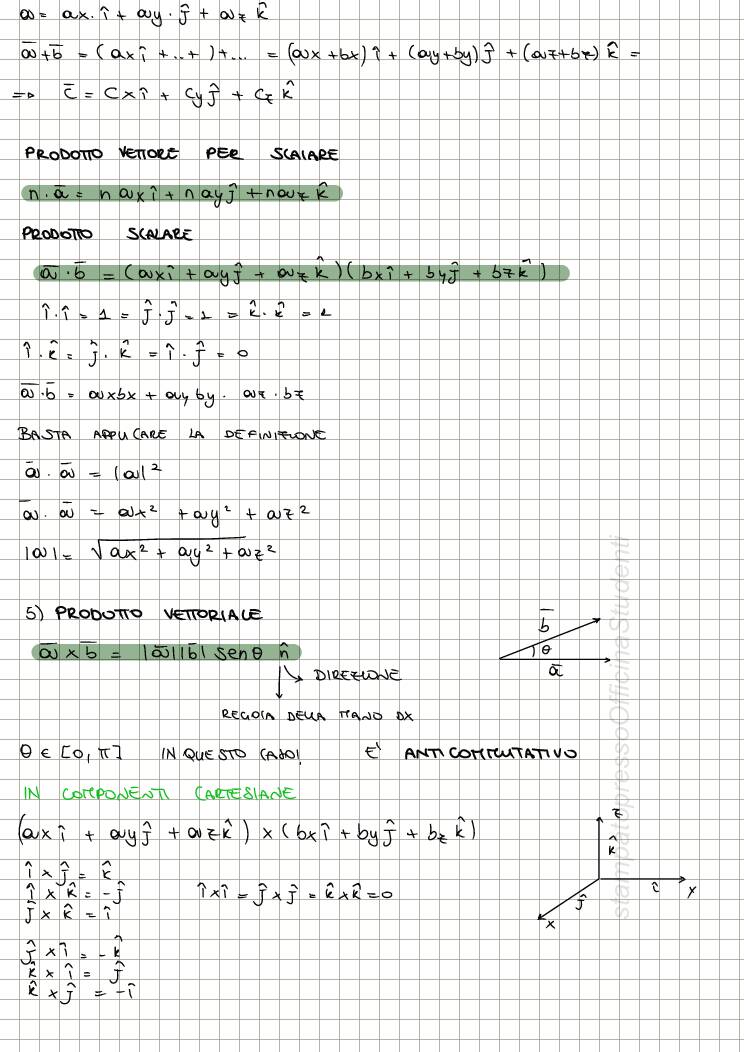 a = ax · î + ay · ĵ + az k̂
a̅+b̅ = (ax î + ..+ )+... = (ax+bx) î + (ay+by) ĵ + (az+bz) k̂ =
=> c̅ = Cx î + Cy ĵ + Cz k̂
PRODOTTO VETTORE PER SCALARE
n·a̅ = n ax î + n ay ĵ + n az k̂
PRODOTTO SCALARE
a̅ · b̅ = (ax î + ay ĵ + az k̂)(bx î + by ĵ + bz k̂)
î · î = 1 = ĵ · ĵ = 1 = k̂ · k̂ = 1
î · k̂ = ĵ · k̂ = î · ĵ = 0
a̅ · b̅ = axbx + ay by · az · bz
BASTA APPLICARE LA DEFINIZIONE
a̅ · a̅ = |a|²
a̅ · a̅ = ax² + ay² + az²
|a| = √ax² + ay² + az²
5) PRODOTTO VETTORIALE
a̅ x b̅ = |a̅||b̅| sen θ n̂
DIREZIONE
REGOLA DELLA MANO DX
b̅
θ
a̅
θ ∈ [0, π] IN QUESTO CASO! E' ANTICOMMUTATIVO
IN COMPONENTI CARTESIANE
(ax î + ay ĵ + az k̂) x (bx î + by ĵ + bz k̂)
î x ĵ = k̂
î x k̂ = -ĵ
ĵ x k̂ = î
î x î = ĵ x ĵ = k̂ x k̂ = 0
ĵ x î = -k̂
k̂ x î = ĵ
k̂ x ĵ = -î
z
k̂
î
y
ĵ
x
stampatopressoOfficinaStudenti